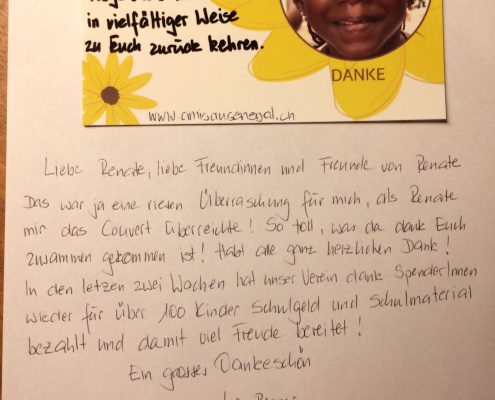 in vielfältiger Weise
zu Euch zurück kehren.
DANKE
www.amisausenegal.ch
Liebe Renate, liebe Freundinnen und Freunde von Renate
Das war ja eine riesen Überraschung für mich, als Renate
mir das Couvert überreichte! So toll, was da dank Euch
zusammen gekommen ist! Habt alle ganz herzlichen Dank!
In den letzen zwei Wochen hat unser Verein dank SpenderInnen
wieder für über 100 Kinder Schulgeld und Schulmaterial
bezahlt und damit viel Freude bereitet!
Ein grosses Dankeschön